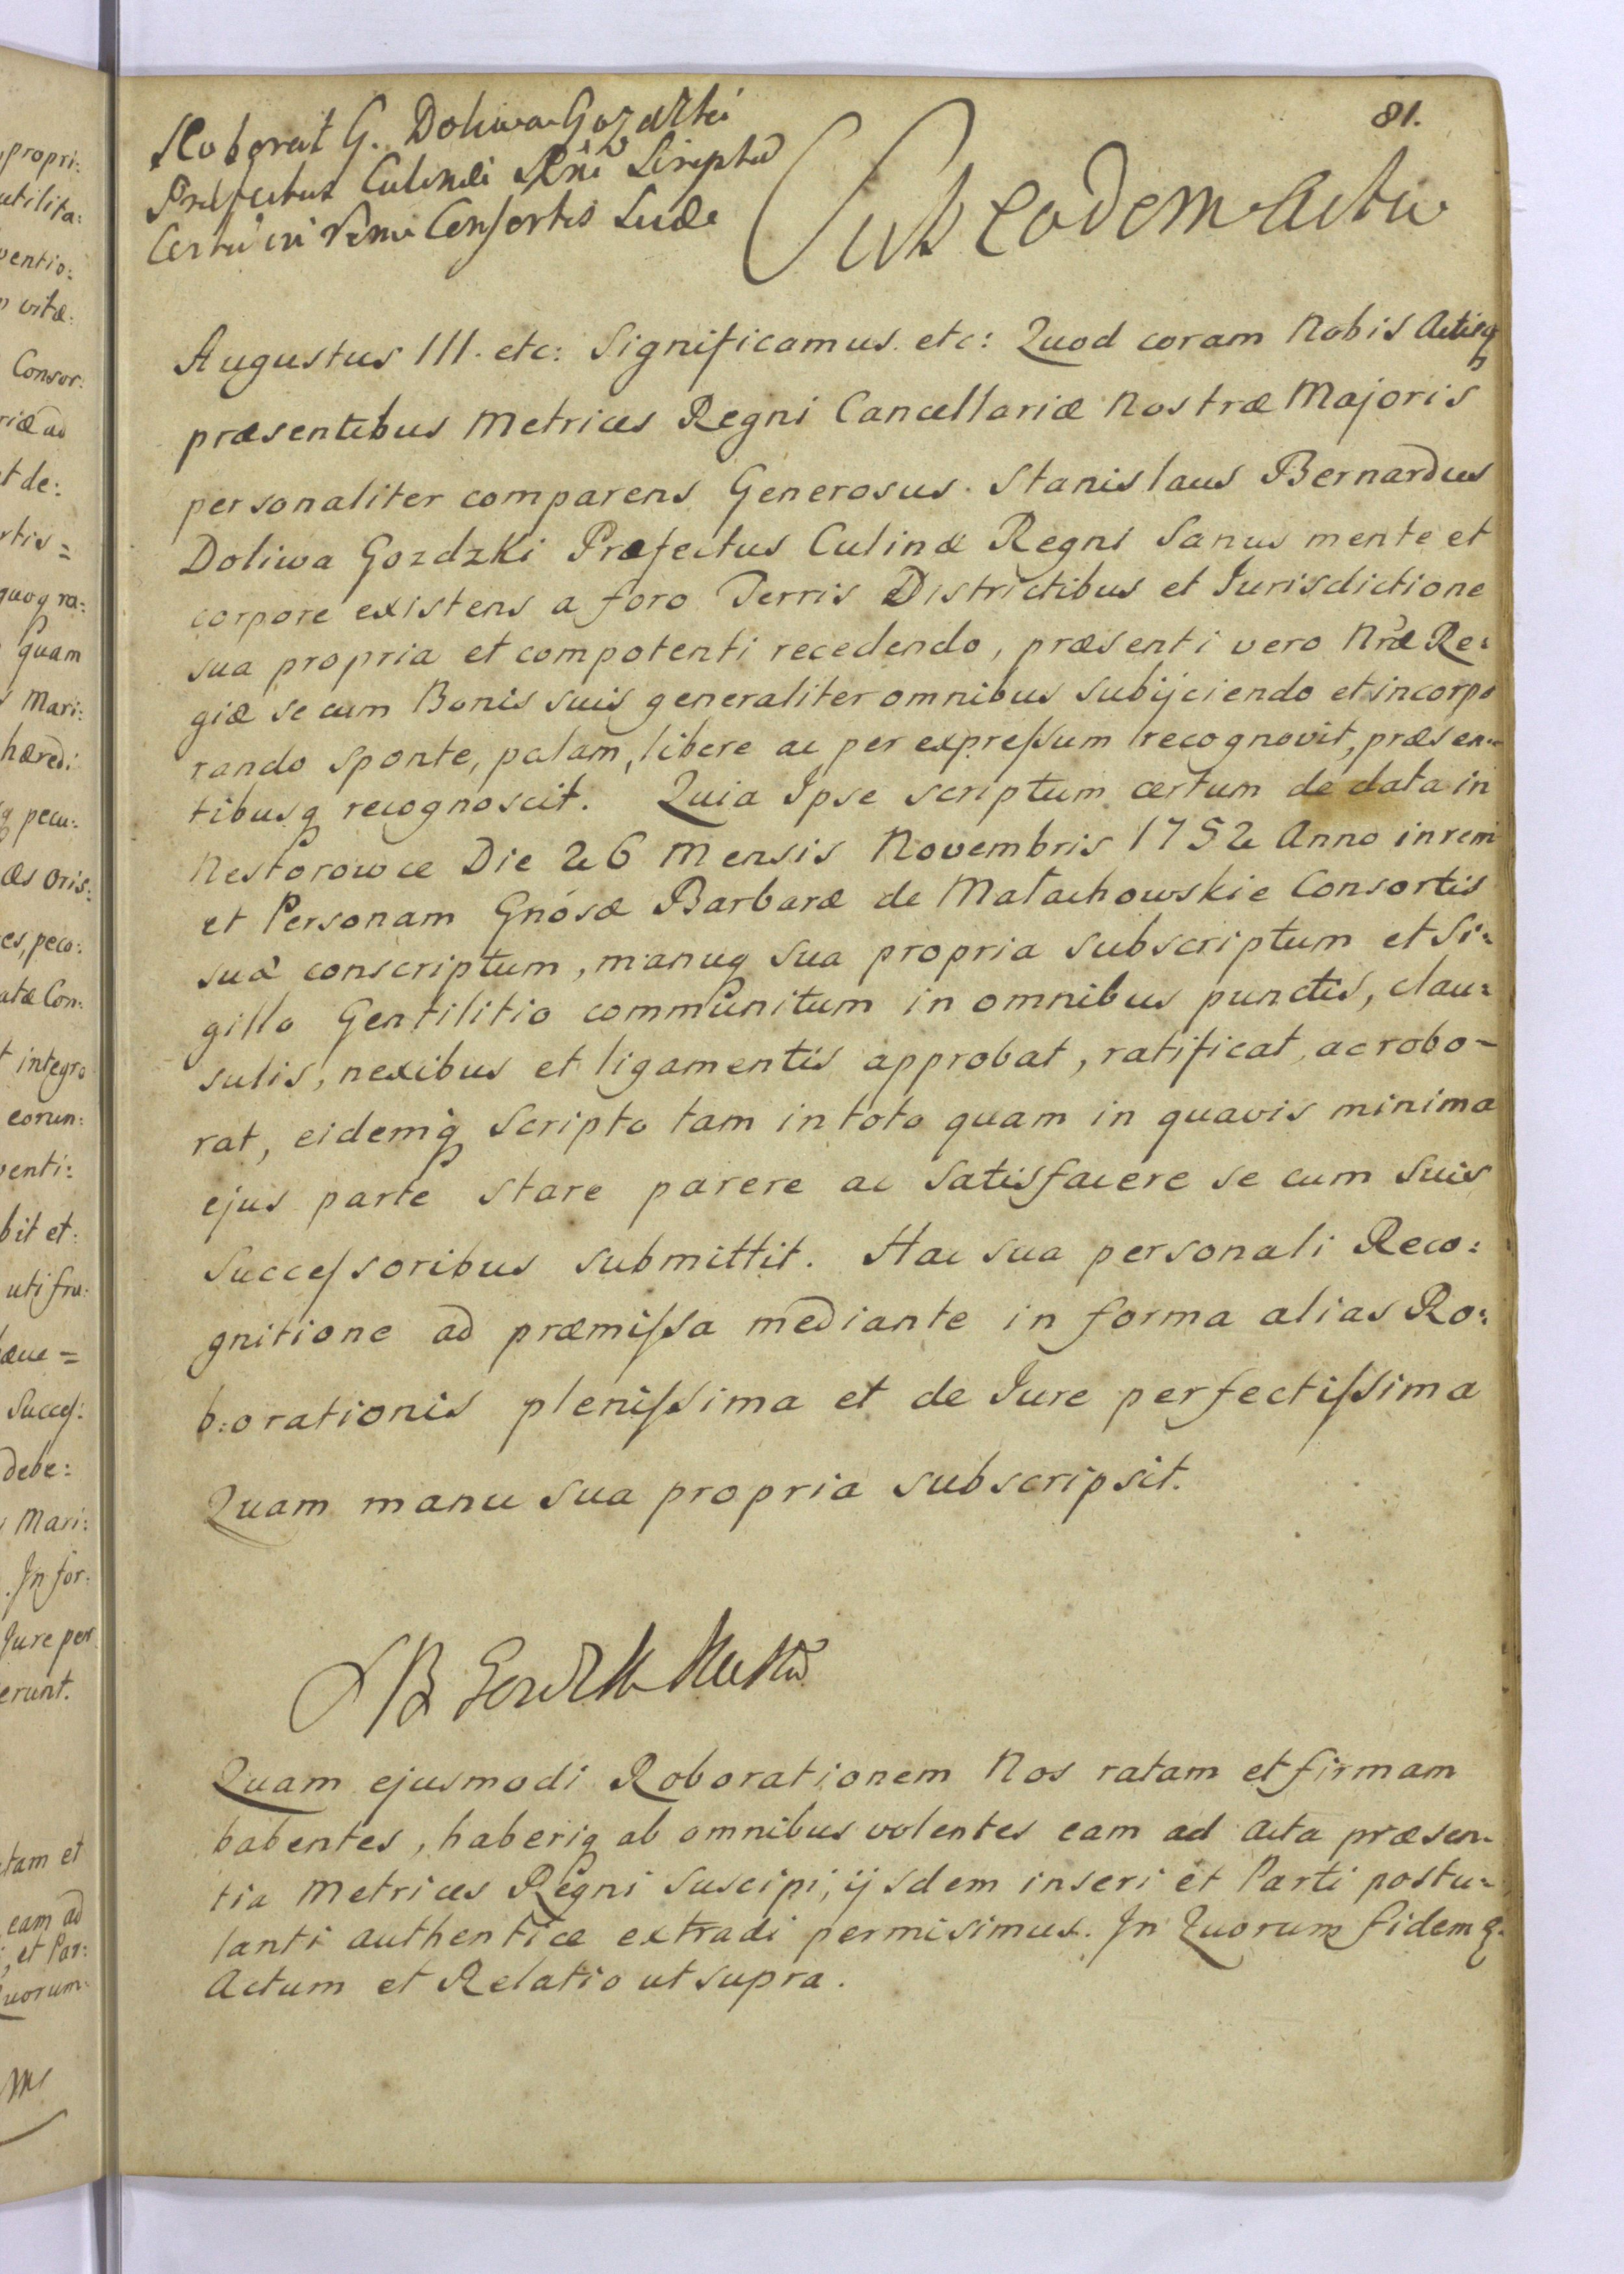 81.
Roborat G. Doliwa Gozdzki
Præfectus Culinæ Rni Scriptū
Certū in rem Consortis Suæ
Sub eodem Actu
Augustus III. etc: Significamus. etc: Quod coram Nobis Actisq
præsentibus Metrices Regni Cancellariæ Nostræ Majoris
personaliter comparens Generosus. Stanislaus Bernardus
Doliwa Gozdzki Præfectus Culinæ Regni Sanus mente et
corpore existens a foro Terris Districtibus et Iurisdictione
sua propria et compotenti recedendo, præsenti vero Nræ Re:
giæ se cum Bonis suis generaliter omnibus subijciendo et incorpo
rando sponte, palam, libere ac per expressum recognovit, præsen:
tibusq recognoscit. Quia Ipse scriptum certum de data in
Nestorowce Die 26 Mensis Novembris 1752 Anno in rem
et Personam Gnosæ Barbaræ de Małachowskie Consortis
suæ conscriptum, manuq sua propria subscriptum et Si:
gillo Gentilitio communitum in omnibus punctis, clau:
sulis, nexibus et ligamentis approbat, ratificat, ac robo-
rat, eidemq Scripto tam in toto quam in quavis minima
ejus parte stare parere ac satisfacere se cum Suis
Successoribus submittit. Hac sua personali Reco:
gnitione ad præmissa mediante in forma alias Ro:
b:orationis plenissima et de Iure perfectissima
Quam manu sua propria subscripsit.
SB Gozdzki
Quam ejusmodi Roborationem Nos ratam et firmam
habentes, haberiq ab omnibus volentes eam ad Acta præsen:
tia Metrices Regni suscipi, ijsdem inseri et Parti postu:
lanti authentice extradi permisimus. In Quorum fidem q.
Actum et Relatio ut supra.